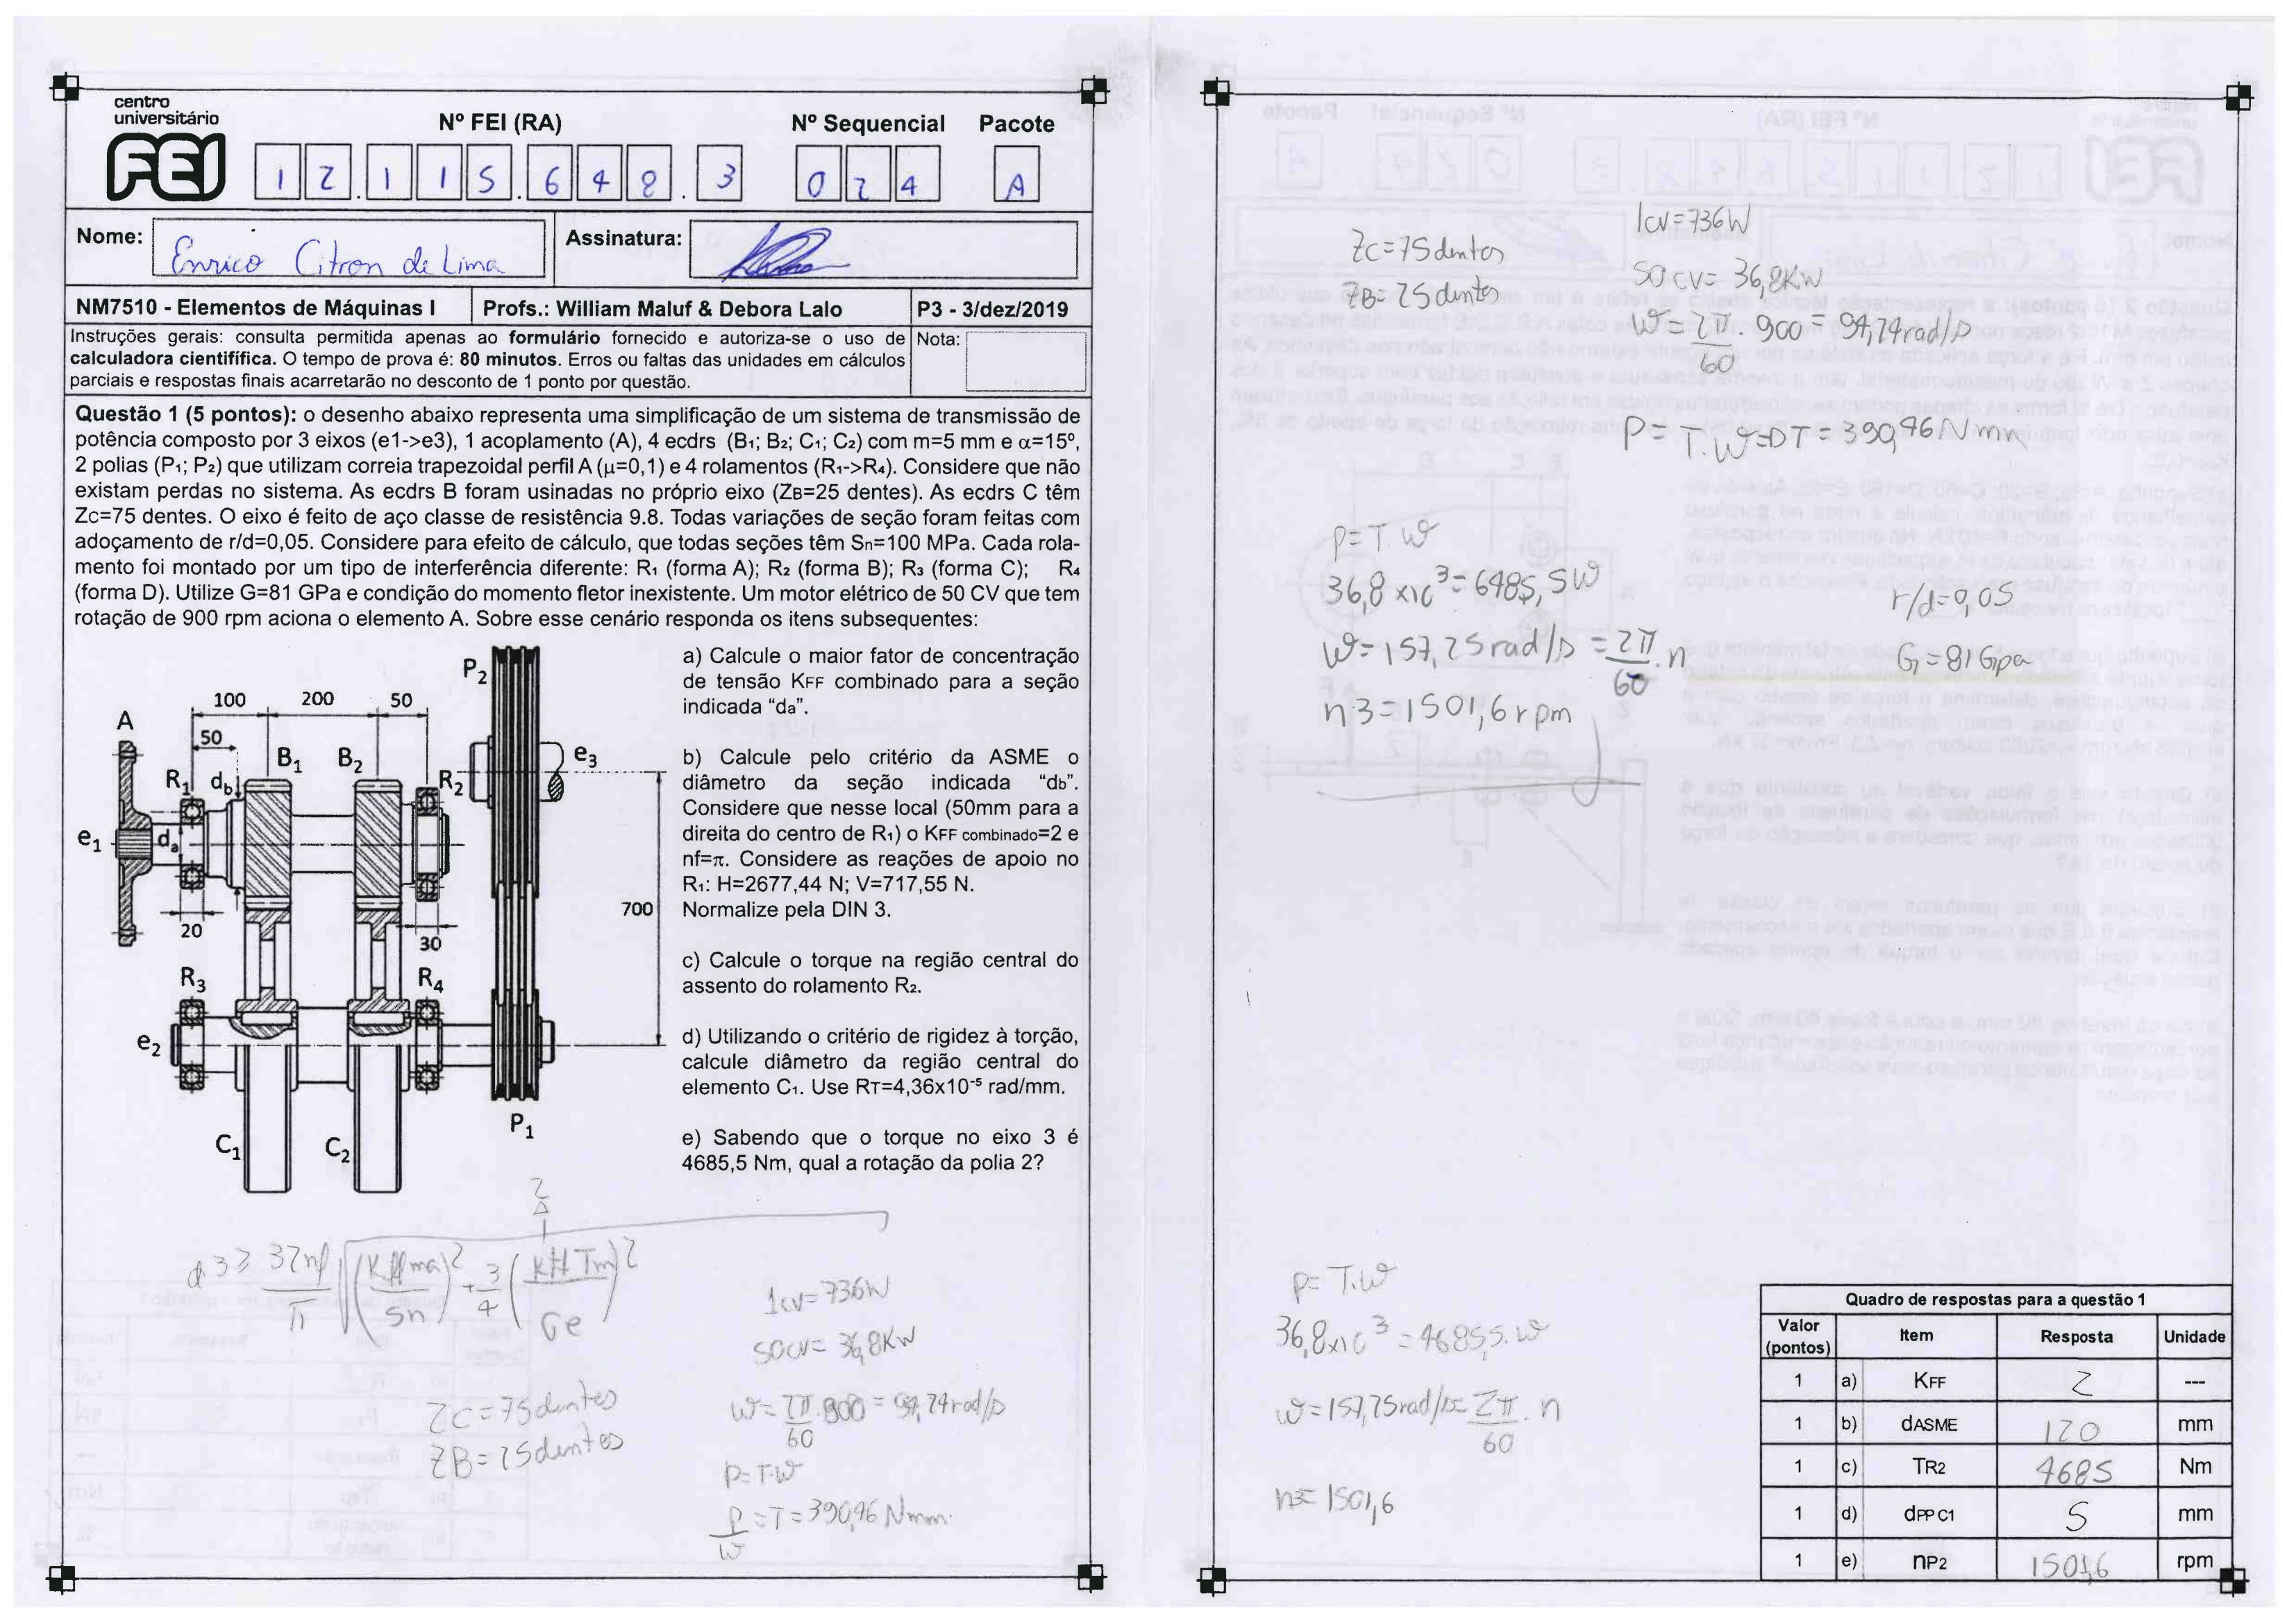 centro
universitário
FEI
Nº FEI (RA)
Nº Sequencial
Pacote
12.115.648.3
024
A
Nome:
Enrico Citron de Lima
Assinatura:
NM7510 - Elementos de Máquinas I
Profs.: William Maluf & Debora Lalo
P3 - 3/dez/2019
Instruções gerais: consulta permitida apenas ao formulário fornecido e autoriza-se o uso de
calculadora cientifífica. O tempo de prova é: 80 minutos. Erros ou faltas das unidades em cálculos
parciais e respostas finais acarretarão no desconto de 1 ponto por questão.
Nota:
Questão 1 (5 pontos): o desenho abaixo representa uma simplificação de um sistema de transmissão de
potência composto por 3 eixos (e1->e3), 1 acoplamento (A), 4 ecdrs (B1; B2; C1; C2) com m=5 mm e α=15º,
2 polias (P1; P2) que utilizam correia trapezoidal perfil A (μ=0,1) e 4 rolamentos (R1->R4). Considere que não
existam perdas no sistema. As ecdrs B foram usinadas no próprio eixo (ZB=25 dentes). As ecdrs C têm
Zc=75 dentes. O eixo é feito de aço classe de resistência 9.8. Todas variações de seção foram feitas com
adoçamento de r/d=0,05. Considere para efeito de cálculo, que todas seções têm Sn=100 MPa. Cada rola-
mento foi montado por um tipo de interferência diferente: R1 (forma A); R2 (forma B); R3 (forma C); R4
(forma D). Utilize G=81 GPa e condição do momento fletor inexistente. Um motor elétrico de 50 CV que tem
rotação de 900 rpm aciona o elemento A. Sobre esse cenário responda os itens subsequentes:
100
200
50
50
A
R1
db
B1
B2
R2
P2
e3
e1
da
20
30
700
R3
R4
e2
C1
C2
P1
a) Calcule o maior fator de concentração
de tensão KFF combinado para a seção
indicada “da”.
b) Calcule pelo critério da ASME o
diâmetro da seção indicada “db”.
Considere que nesse local (50mm para a
direita do centro de R1) o KFF combinado=2 e
nf=π. Considere as reações de apoio no
R1: H=2677,44 N; V=717,55 N.
Normalize pela DIN 3.
c) Calcule o torque na região central do
assento do rolamento R2.
d) Utilizando o critério de rigidez à torção,
calcule diâmetro da região central do
elemento C1. Use RT=4,36x10⁻⁵ rad/mm.
e) Sabendo que o torque no eixo 3 é
4685,5 Nm, qual a rotação da polia 2?
d³ ≥ 32nf/π √(Kffma/Sn)² + 3/4 (kff Tm/σe)²
1cv=736W
50cv= 36,8Kw
ZC=75dentes
ZB=25dentes
W= 2π/60 . 900 = 94,24rad/s
P=T.W
P/W = T = 390,46 Nmm
Zc=75dentos
ZB=25dentos
1cv=736W
50cv= 36,8Kw
W= 2π/60 . 900 = 94,24rad/s
P= T.W => T = 390,46 Nmm
P=T.W
36,8 x10³= 6485,5W
W=157,25rad/s = 2π/60 . n
n3=1501,6rpm
r/d=0,05
G=81Gpa
P= T.W
36,8x10³ = 4685,5.W
W=157,25rad/s= 2π/60 . n
n3= 1501,6
Quadro de respostas para a questão 1
Valor (pontos) Item Resposta Unidade
1 a) KFF 2 ---
1 b) dASME 120 mm
1 c) TR2 4685 Nm
1 d) dPP C1 5 mm
1 e) nP2 1501,6 rpm